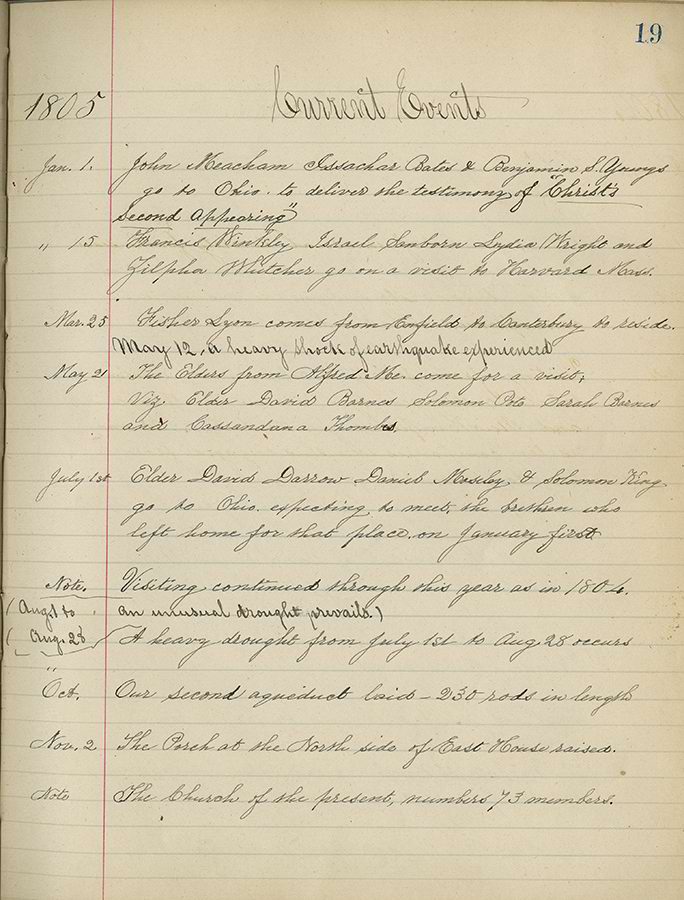 19
1805 Current Events
Jan. 1. John Meacham Issachar Bates & Benjamin S. Youngs
go to Ohio. to deliver the testimony of "Christ's
second appearing"
" 15 Francis Winkley, Israel Sanborn Lydia Wright and
Zilpha Whitcher go on a visit to Harvard Mass.
Mar. 25 Fisher Lyon comes from Enfield to Canterbury to reside.
May 12, a heavy shock of earthquake experienced
May 21 The Elders from Alfred Me. come for a visit;
Viz. Elder David Barnes Solomon Sarah Barnes
and Cassandana
July 1st Elder David Darrow Daniel Mosley, & Solomon King
go to Ohio. expecting to meet, the brethren who
left home for that place. on January first
Note. Visiting continued through this year as in 1804.
(Aug 1 to an unusual drought prevails.)
(Aug. 28 A heavy drought from July 1st to Aug 28 occurs
"
Oct. Our second aqueduct laid – 230 rods in length
Nov. 2 The Porch at the North side of East House raised.
Note The Church of the present, numbers 73 members.